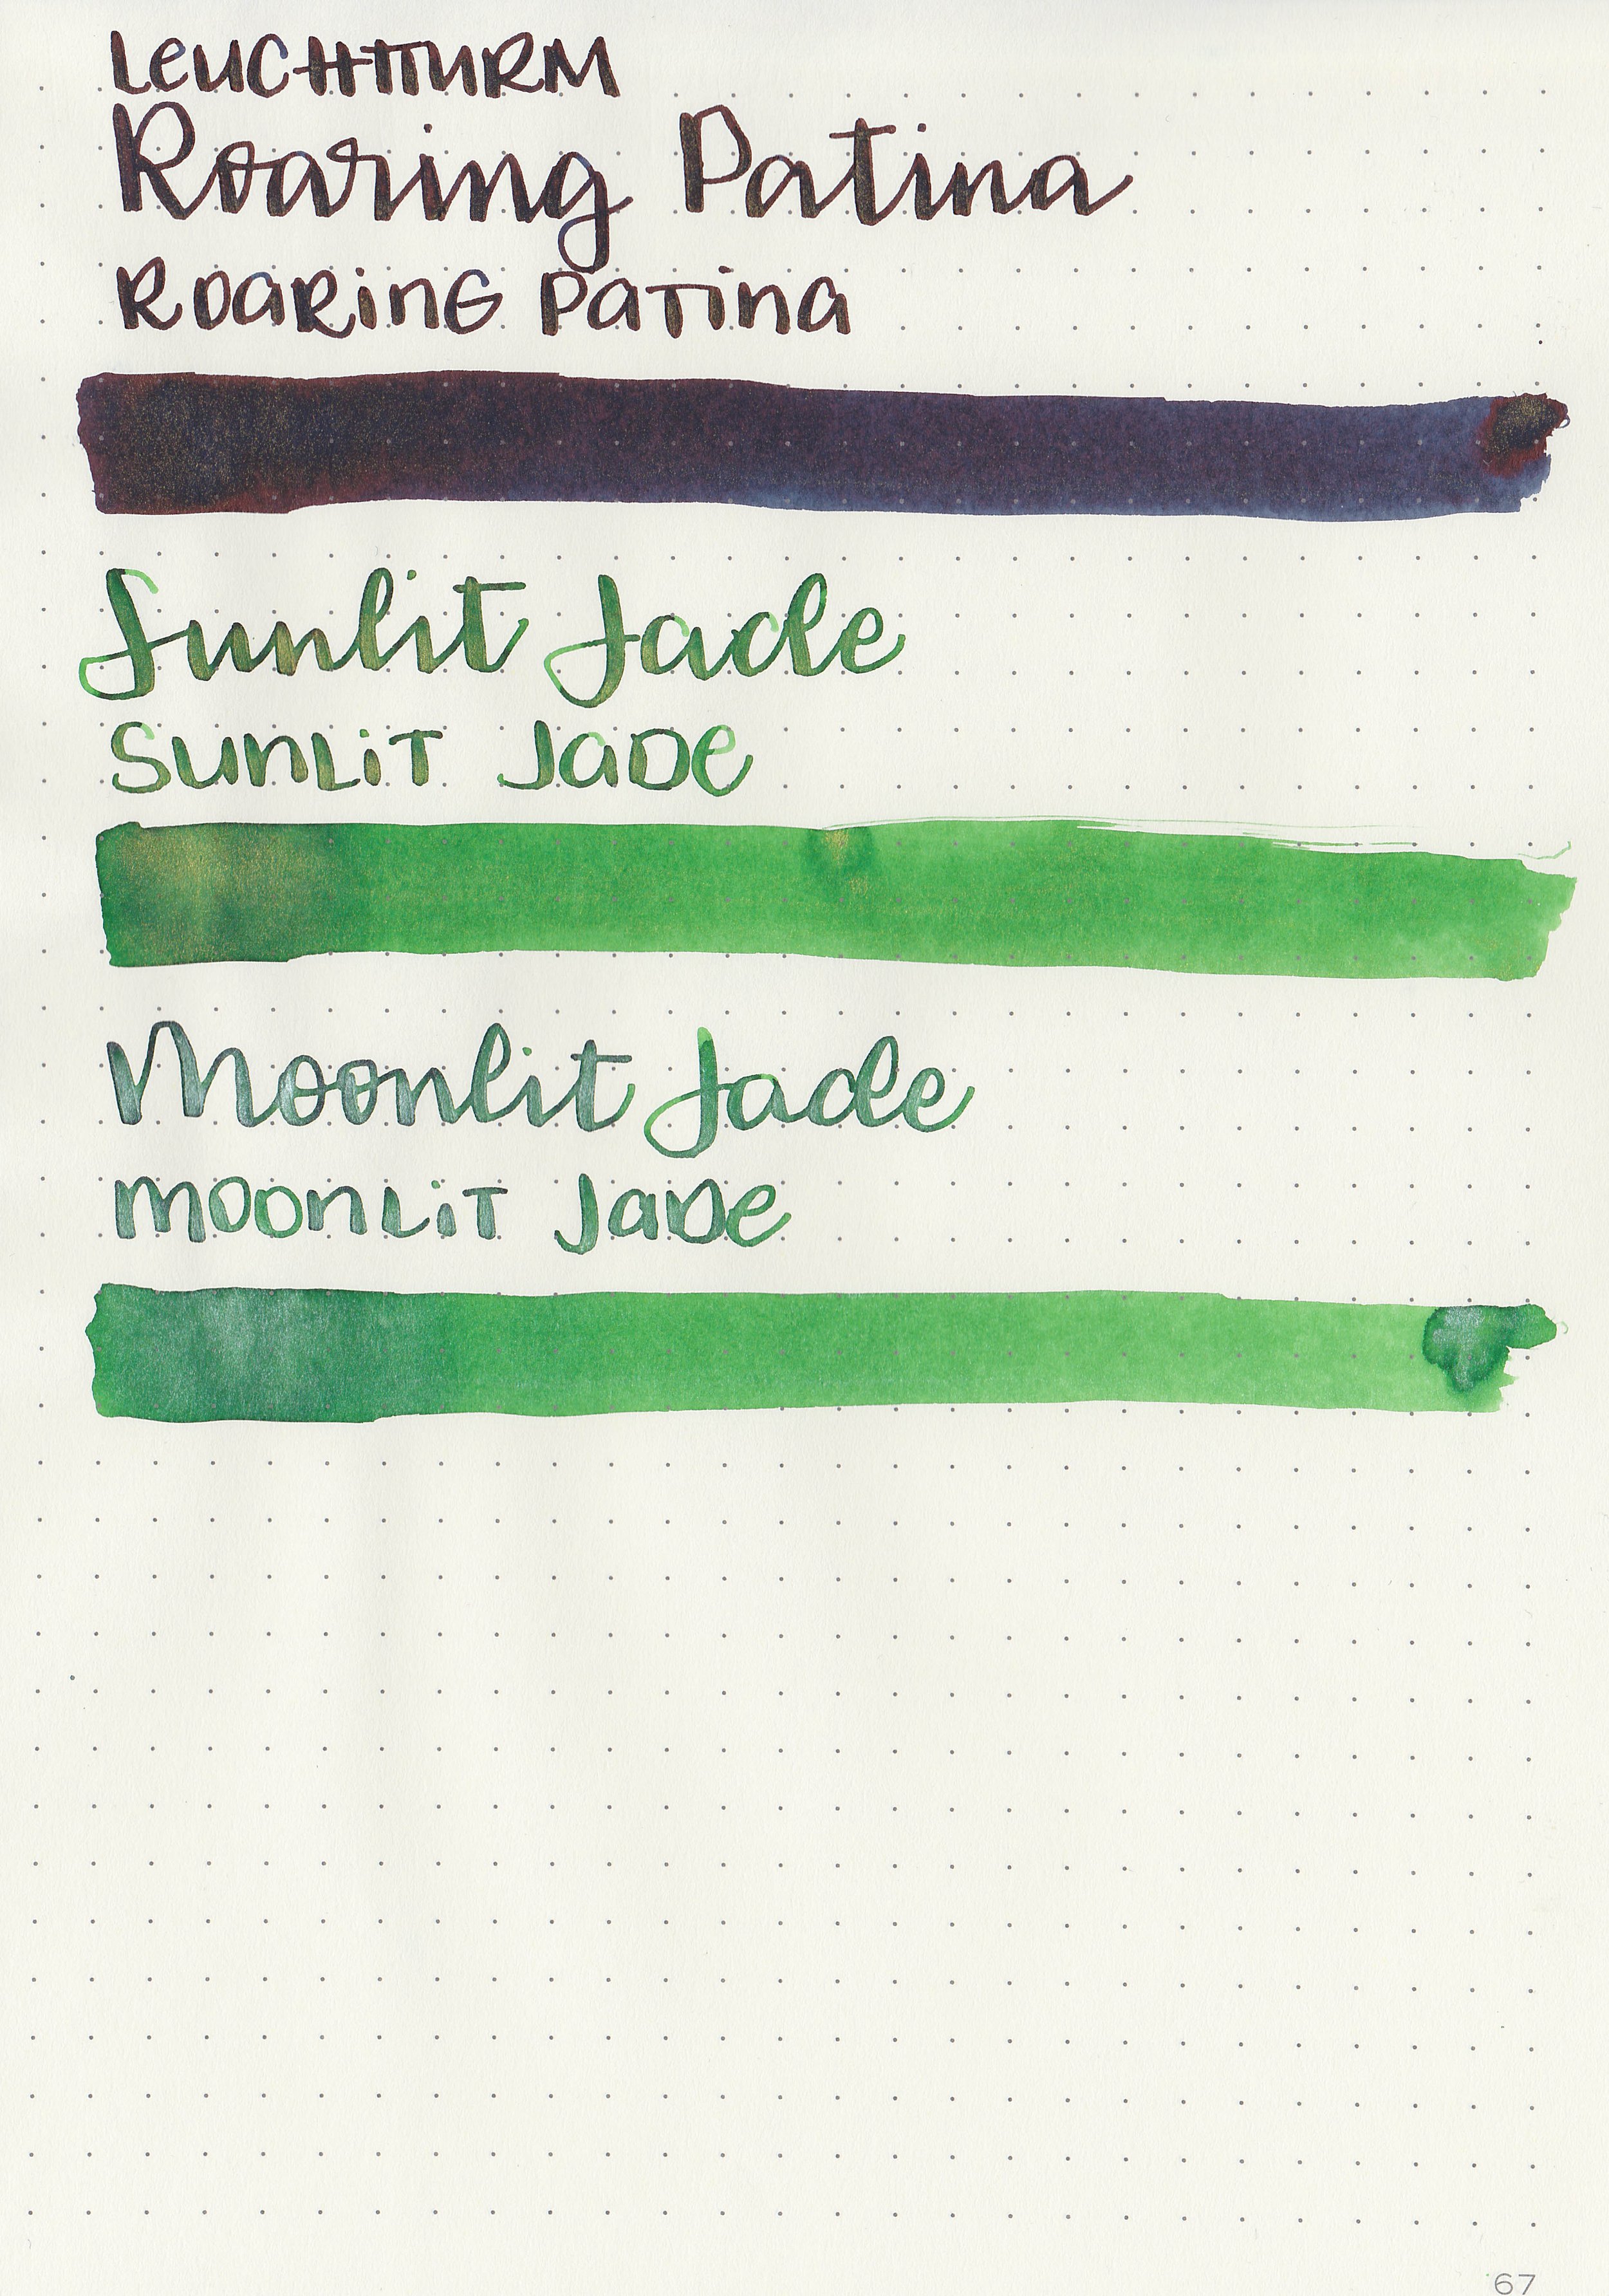 LEUCHTTURM
Roaring Patina
ROARING PATINA
Sunlit Jade
SUNLIT JADE
Moonlit Jade
MOONLIT JADE
67